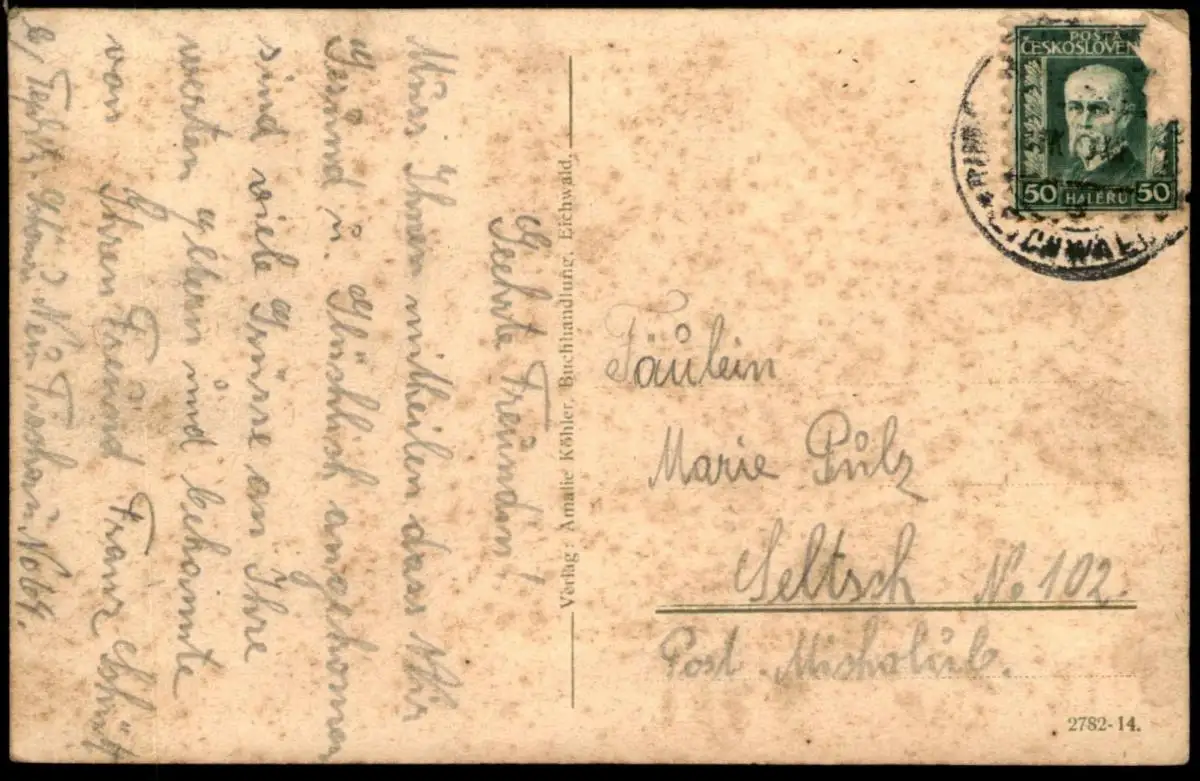 Geehrte Freundin!
Muss Ihnen mitheilen das Wir
Gesund u. Glücklich angekommen
sind viele Grüsse an Ihre
werten Eltern und bekannte
von Ihren Freund Franz
b/ Teplitz. Neu Tischau No 64.
Verlag: Amalie Köhler, Buchhandlung, Eichwald.
POSTA
ČESKOSLOVEN
50 HALERU 50
Fäulein
Marie Pulz
Seltsch No 102.
Post Micholub.
2782-14.